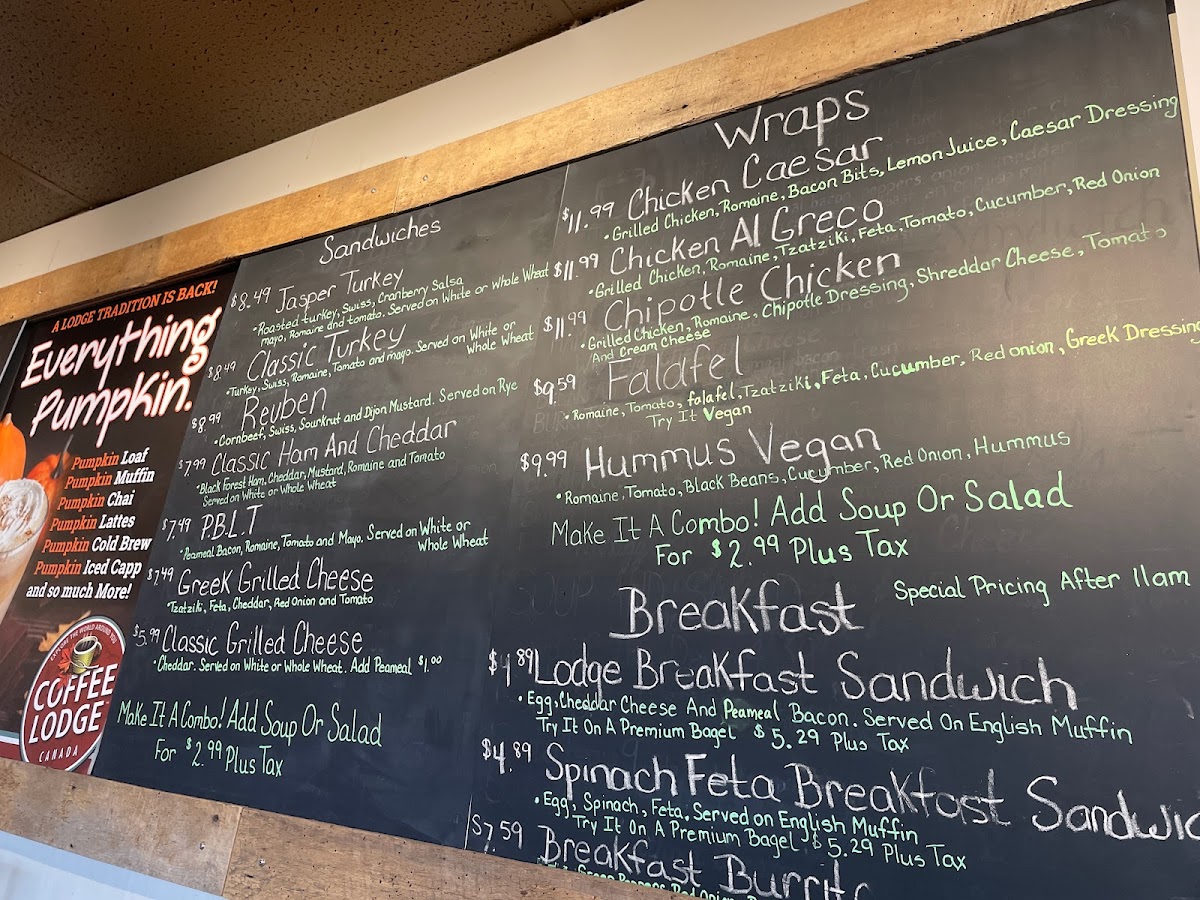 A LODGE TRADITION IS BACK!
Everything
Pumpkin.
Pumpkin Loaf
Pumpkin Muffin
Pumpkin Chai
Pumpkin Lattes
Pumpkin Cold Brew
Pumpkin Iced Capp
and so much More!
EXPLORE THE WORLD AROUND YOU
COFFEE
LODGE
CANADA
Sandwiches
$8.49 Jasper Turkey
• Roasted turkey, Swiss, Cranberry Salsa
mayo, Romaine and tomato. Served on White or Whole Wheat
$8.49 Classic Turkey
• Turkey, Swiss, Romaine, Tomato and mayo. Served on White or
Whole Wheat
$8.99 Reuben
• Cornbeef, Swiss, Sourkrut and Dijon Mustard. Served on Rye
$7.99 Classic Ham And Cheddar
• Black Forest Ham, Cheddar, Mustard, Romaine and Tomato
Served on White or Whole Wheat
$7.49 P.B.L.T
• Peameal Bacon, Romaine, Tomato and Mayo. Served on White or
Whole Wheat
$7.49 Greek Grilled Cheese
• Tzatziki, Feta, Cheddar, Red Onion and Tomato
$5.99 Classic Grilled Cheese
• Cheddar. Served on White or Whole Wheat. Add Peameal $1.00
Make It A Combo! Add Soup Or Salad
For $2.99 Plus Tax
Wraps
$11.99 Chicken Caesar
• Grilled Chicken, Romaine, Bacon Bits, Lemon Juice, Caesar Dressing
$11.99 Chicken Al Greco
• Grilled Chicken, Romaine, Tzatziki, Feta, Tomato, Cucumber, Red Onion
$11.99 Chipotle Chicken
• Grilled Chicken, Romaine, Chipotle Dressing, Shreddar Cheese, Tomato
And Cream Cheese
$9.59 Falafel
• Romaine, Tomato, falafel, Tzatziki, Feta, Cucumber, Red onion, Greek Dressing
Try It Vegan
$9.99 Hummus Vegan
• Romaine, Tomato, Black Beans, Cucumber, Red Onion, Hummus
Make It A Combo! Add Soup Or Salad
For $2.99 Plus Tax
Special Pricing After 11am
Breakfast
$4.89 Lodge Breakfast Sandwich
• Egg, Cheddar Cheese And Peameal Bacon. Served On English Muffin
Try It On A Premium Bagel $5.29 Plus Tax
$4.89 Spinach Feta Breakfast Sandwic
• Egg, Spinach, Feta. Served on English Muffin
Try It On A Premium Bagel $5.29 Plus Tax
$7.59 Breakfast Burrito